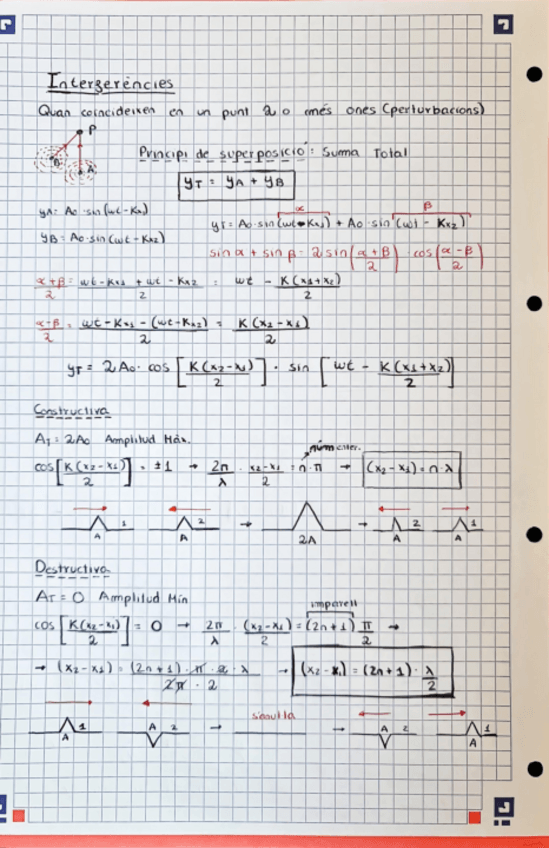 Interferències
Quan coincideixen en un punt 2 o més ones (perturbacions)
P
B A
Principi de superposició: Suma Total
y_T = y_A + y_B
α β
y_A = A₀·sin(ωt - Kx₁) y_T = A₀·sin(ωt - Kx₁) + A₀·sin(ωt - Kx₂)
y_B = A₀·sin(ωt - Kx₂)
sin α + sin β = 2 sin(α+β/2)·cos(α-β/2)
α+β/2 = ωt - Kx₁ + ωt - Kx₂/2 = ωt - K(x₁+x₂)/2
α-β/2 = ωt - Kx₁ - (ωt - Kx₂)/2 = K(x₂-x₁)/2
y_T = 2A₀·cos[K(x₂-x₁)/2]·sin[ωt - K(x₁+x₂)/2]
Constructiva
A_T = 2A₀ Amplitud Màx.
núm enter.
cos[K(x₂-x₁)/2] = ±1 → 2π/λ · x₂-x₁/2 = n·π → (x₂-x₁) = n·λ
1 2 → → 2 1
A A 2A A A
Destructiva
A_T = 0 Amplitud Mín
imparell
cos[K(x₂-x₁)/2] = 0 → 2π/λ · (x₂-x₁)/2 = (2n+1) π/2 →
→ (x₂-x₁) = (2n+1)·π·2·λ/2π·2 → (x₂-x₁) = (2n+1)·λ/2
A 1 A 2 → → A 2 A 1